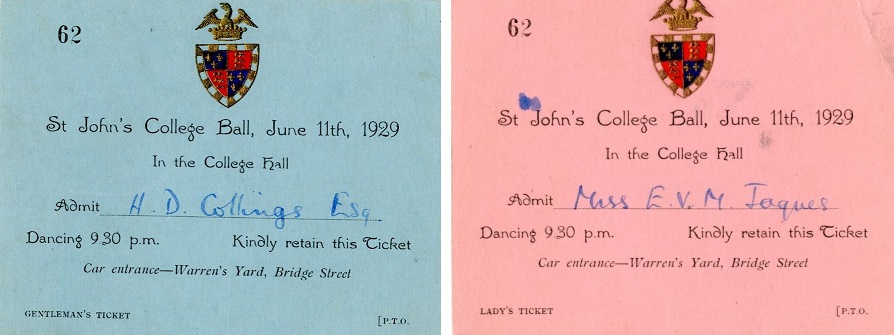 62
St John's College Ball, June 11th, 1929
In the College Hall
Admit H. D. Collings Esq.
Dancing 9 30 p.m. Kindly retain this Ticket
Car entrance—Warren's Yard, Bridge Street
GENTLEMAN'S TICKET [P.T.O.
62
St John's College Ball, June 11th, 1929
In the College Hall
Admit Miss E. V. M. Jaques
Dancing 9 30 p.m. Kindly retain this Ticket
Car entrance—Warren's Yard, Bridge Street
LADY'S TICKET [P.T.O.